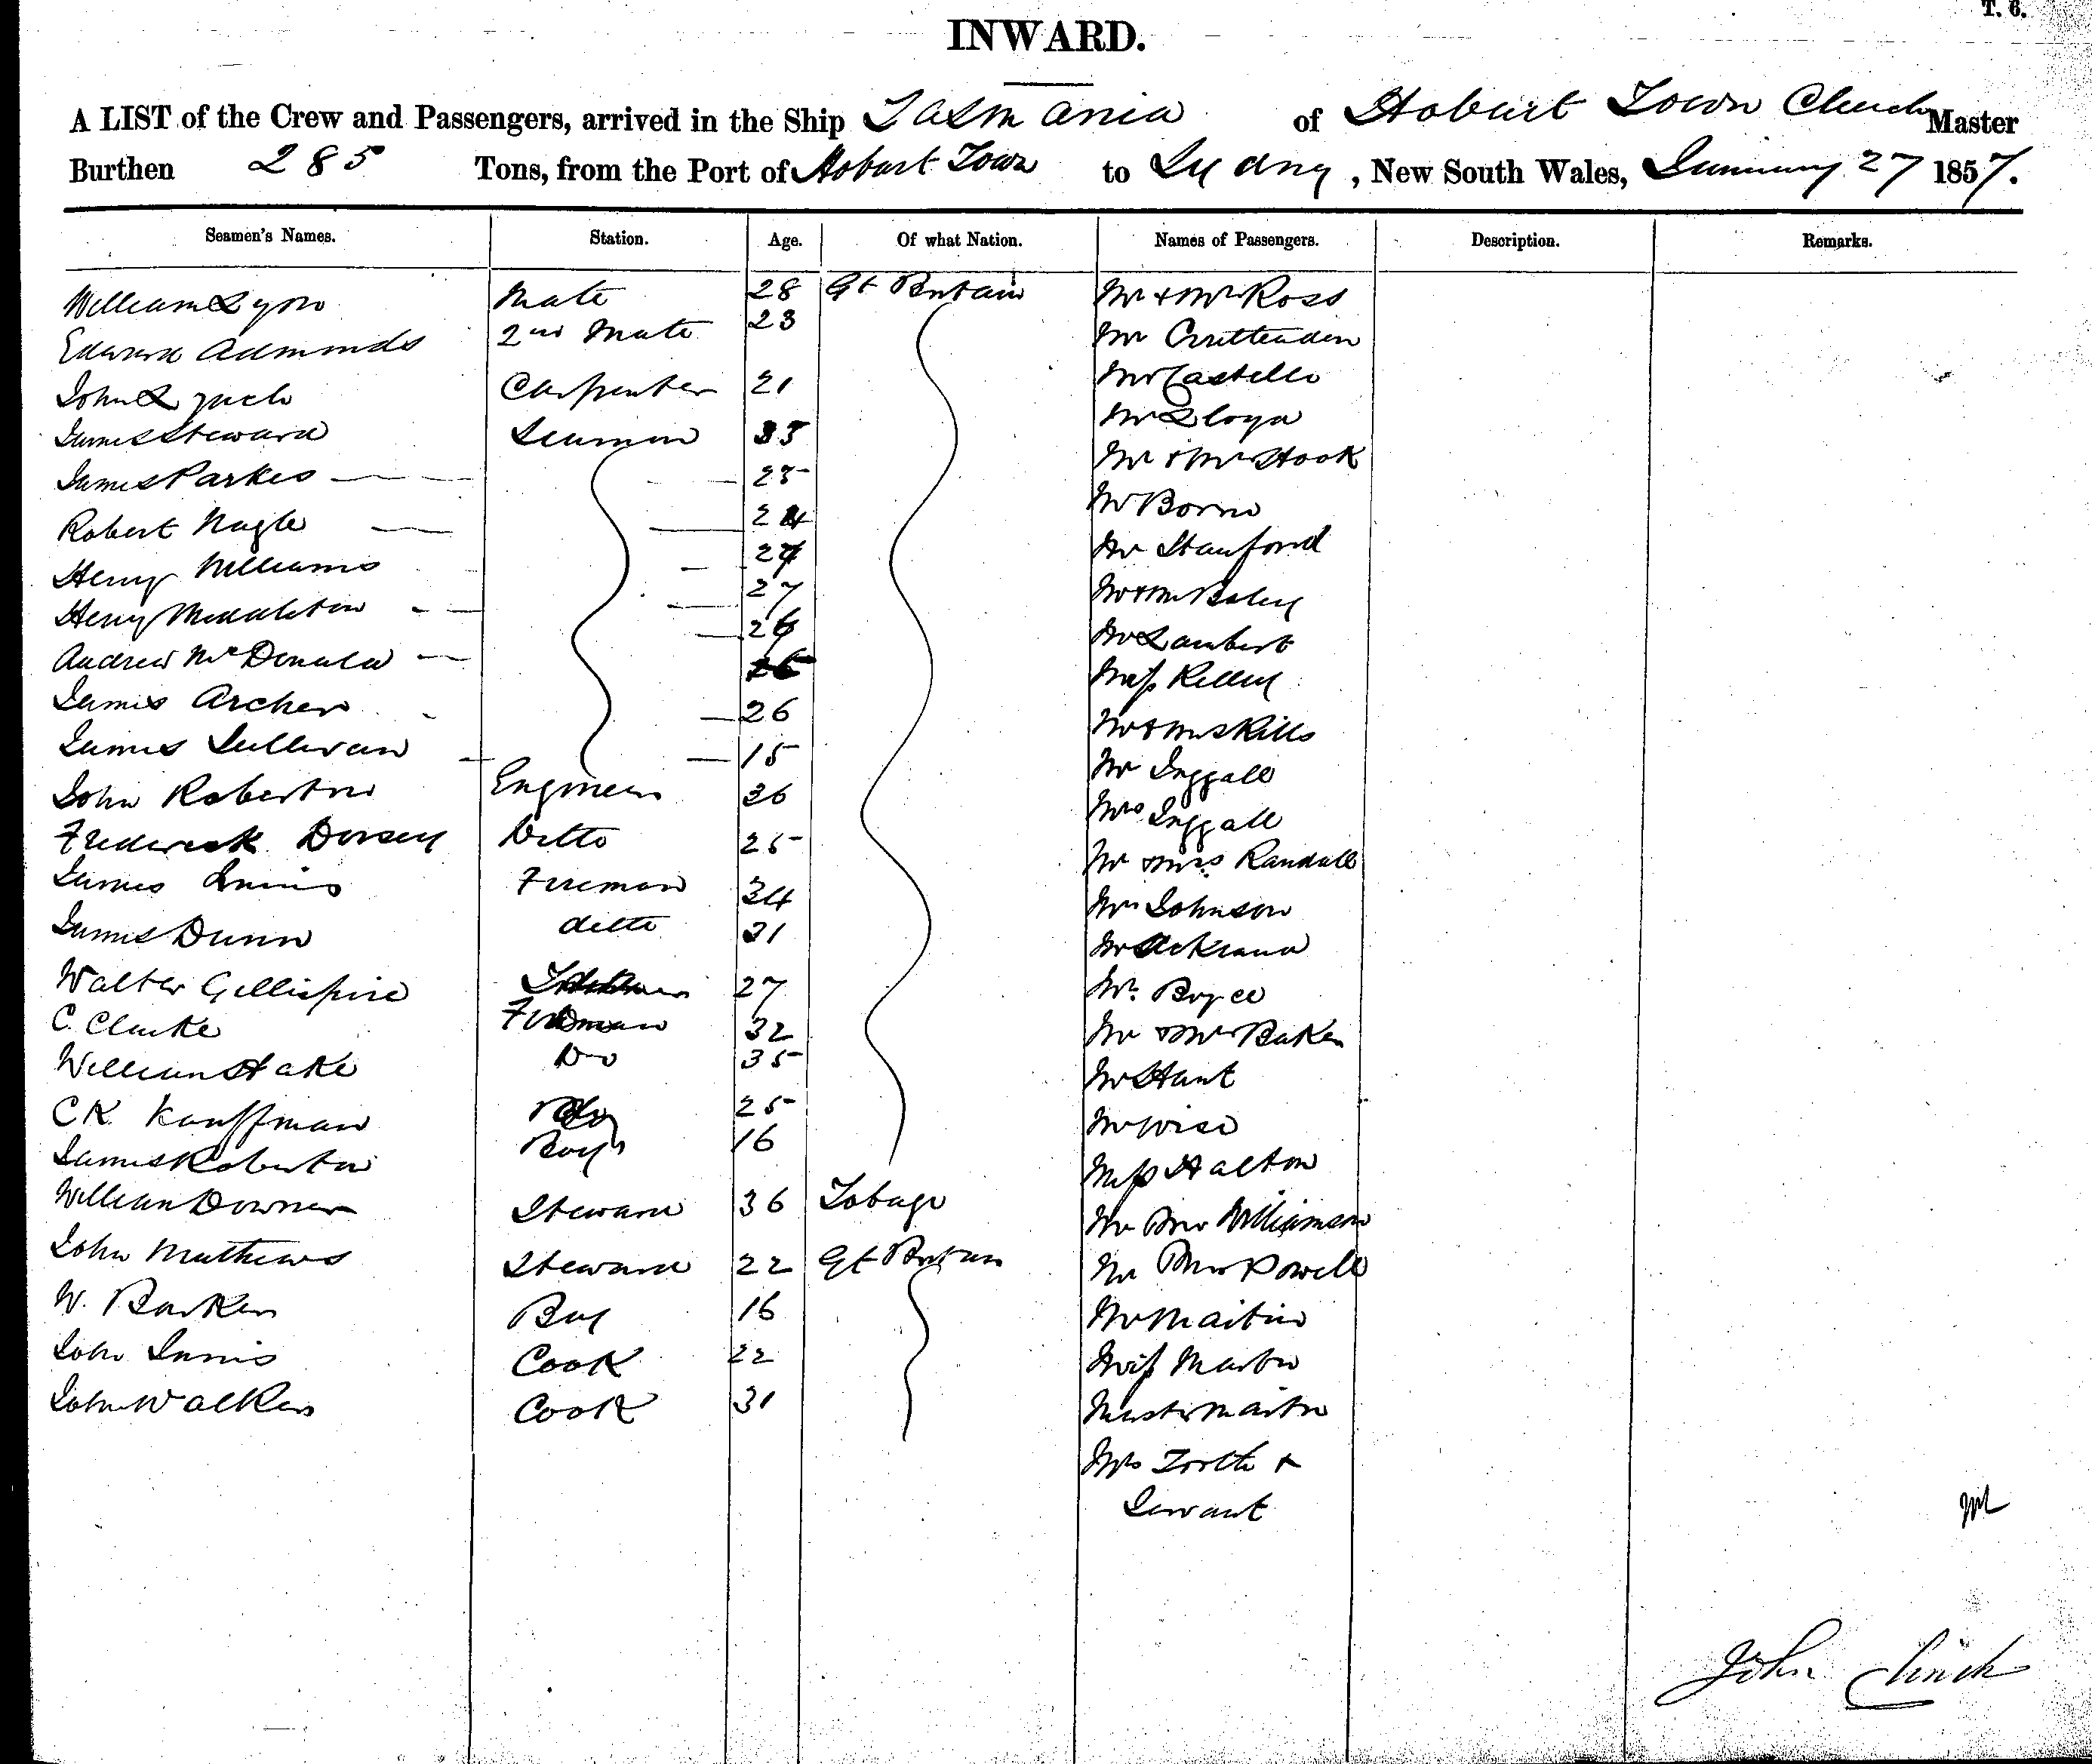 T. 6.
INWARD.
A LIST of the Crew and Passengers, arrived in the Ship Tasmania of Hobart Town Clinch Master
Burthen 285 Tons, from the Port of Hobart Town to Sydney, New South Wales, January 27 1857.
Seamen's Names. Station. Age. Of what Nation. Names of Passengers. Description. Remarks.
William Lyon Mate 28 Gt Britain Mr & Mrs Ross
Edward Admonds 2nd Mate 23 Mr Cruttenden
John Lynch Carpenter 21 Mr Castello
James Steward Seaman 35 Mr Lloyd
James Parkes 25 Mr & Mrs Hook
Robert Nagle 24 Mr Borno
Henry Williams 27 Mr Stanford
Henry Middleton 27 Mr & Mrs Baley
Andrew McDonald 26 Mr Lambert
James Archer 26 Miss Kelly
James Sullivan 15 Mr & Mrs Kills
John Robertson Engineer 36 Mr Inggall
Frederick Dorsey Ditto 25 Mrs Inggall
James Innis Fireman 34 Mr & Mrs Randall
James Dunn ditto 31 Mrs Johnson
Walter Gillispire 27 Mr Ackland
C. Clarke Fireman 32 Mr Boyce
William Hake Do 35 Mr & Mrs Baker
C K Kauffman 25 Mr Hunt
James Robertson Boy 16 Mr Wise
William Downer Steward 36 Tobago Miss Halton
John Mathews Steward 22 Gt Britain Mr Mrs Williamson
W. Barker Boy 16 Mr Mrs Powell
John Innis Cook 22 Mr Martin
John Walker Cook 31 Miss Martin
Master Martin
Mrs Tooth &
Servant
John Clinch